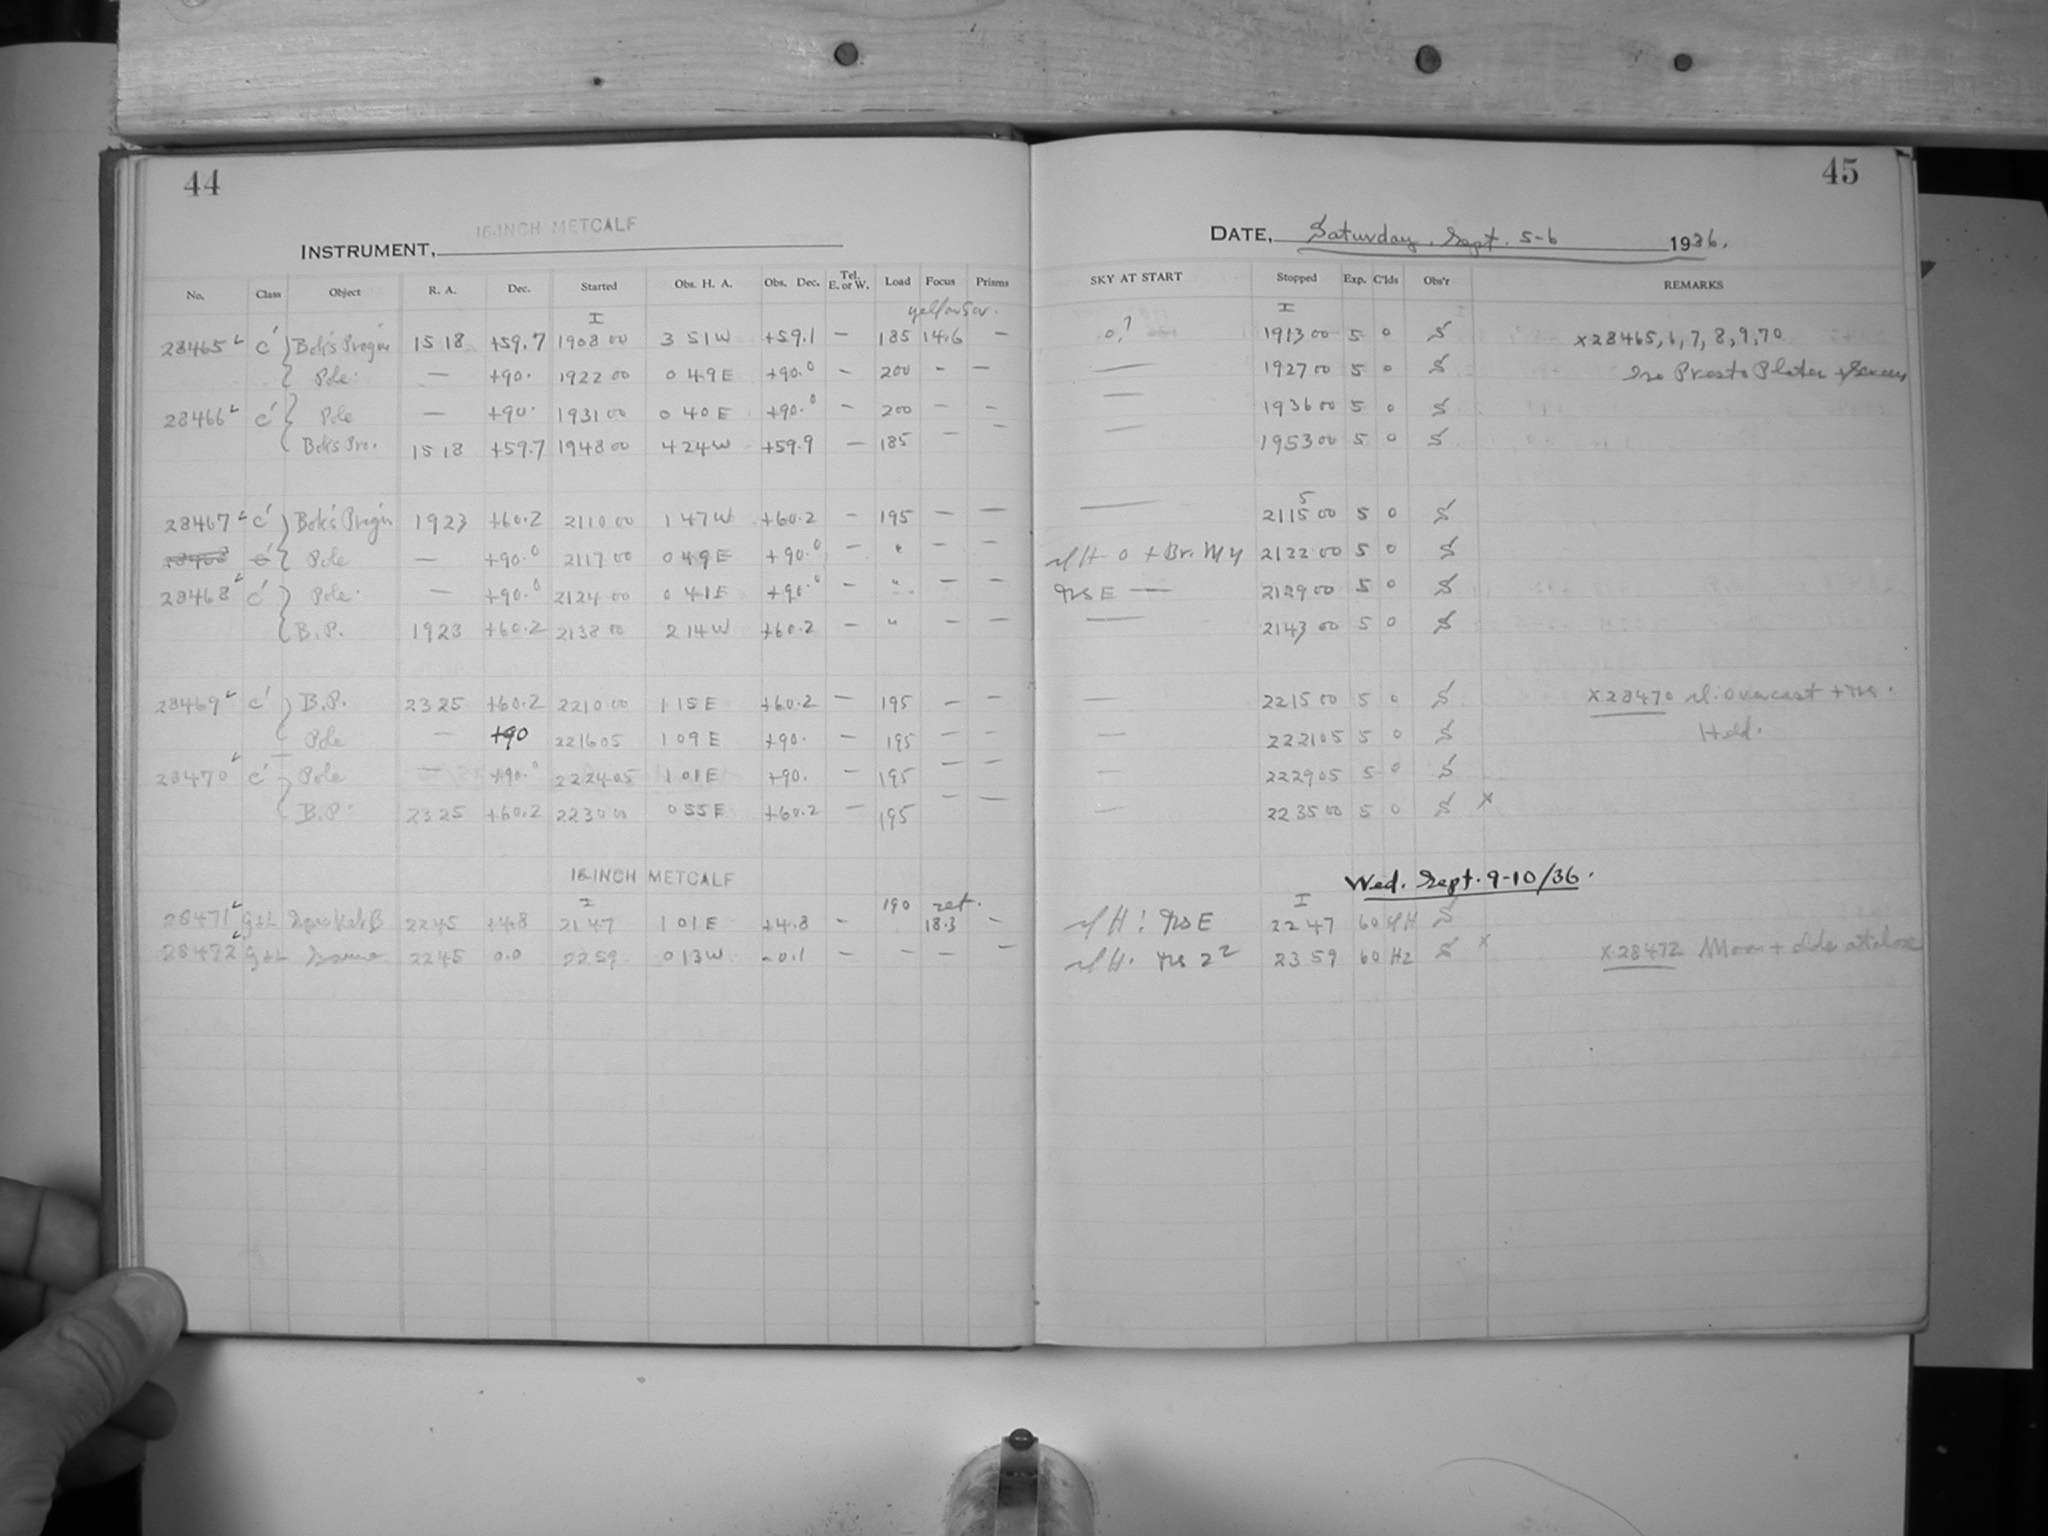 44
INSTRUMENT, 16-INCH METCALF
No. Class Object R. A. Dec. Started Obs. H. A. Obs. Dec. Tel. E. or W. Load Focus Prisms
I
28465 C' Bok's Progm 15 18 +59.7 1908 00 3 51 W +59.1 — 185 14.6 —
Pole — +90. 1922 00 0 49 E +90.0 — 200 — —
28466 C' Pole — +90. 1931 00 0 40 E +90.0 — 200 — —
Bok's Pro. 15 18 +59.7 1948 00 4 24 W +59.9 — 185 — —
28467 C' Bok's Progm 19 23 +60.2 2110 00 1 47 W +60.2 — 195 — —
28468 C' Pole — +90.0 2117 00 0 49 E +90.0 — " — —
28468 C' Pole — +90.0 2124 00 0 41 E +90.0 — " — —
B.P. 19 23 +60.2 2138 00 2 14 W +60.2 — " — —
28469 C' B.P. 23 25 +60.2 2210 00 1 15 E +60.2 — 195 — —
Pole — +90 221605 1 09 E +90. — 195 — —
28470 C' Pole — +90.0 222405 1 01 E +90. — 195 — —
B.P. 23 25 +60.2 2230 00 0 55 E +60.2 — 195 — —
16-INCH METCALF
I 190 ret.
28471 G+L 22 45 +4.8 21 47 1 01 E +4.8 — 18.3 —
28472 G+L 22 45 0.0 22 59 0 13 W -0.1 — — — —
45
DATE, Saturday, Sept. 5-6 1936.
SKY AT START Stopped Exp. C'lds Obs'r REMARKS
I
0? 1913 00 5 0 S x 28465, 6, 7, 8, 9, 70
— 1927 00 5 0 S Presto Plates +
— 1936 00 5 0 S
— 1953 00 5 0 S
— 2115 00 5 0 S
H 0 + Br. My 2122 00 5 0 S
E — 2129 00 5 0 S
— 2143 00 5 0 S
— 2215 00 5 0 S x 28470 overcast +
— 222105 5 0 S Held.
— 222905 5 0 S
— 2235 00 5 0 S x
Wed. Sept. 9-10/36.
I
H: E 22 47 60 H S
H. 23 59 60 Hz S x x 28472 Moon + clds at close